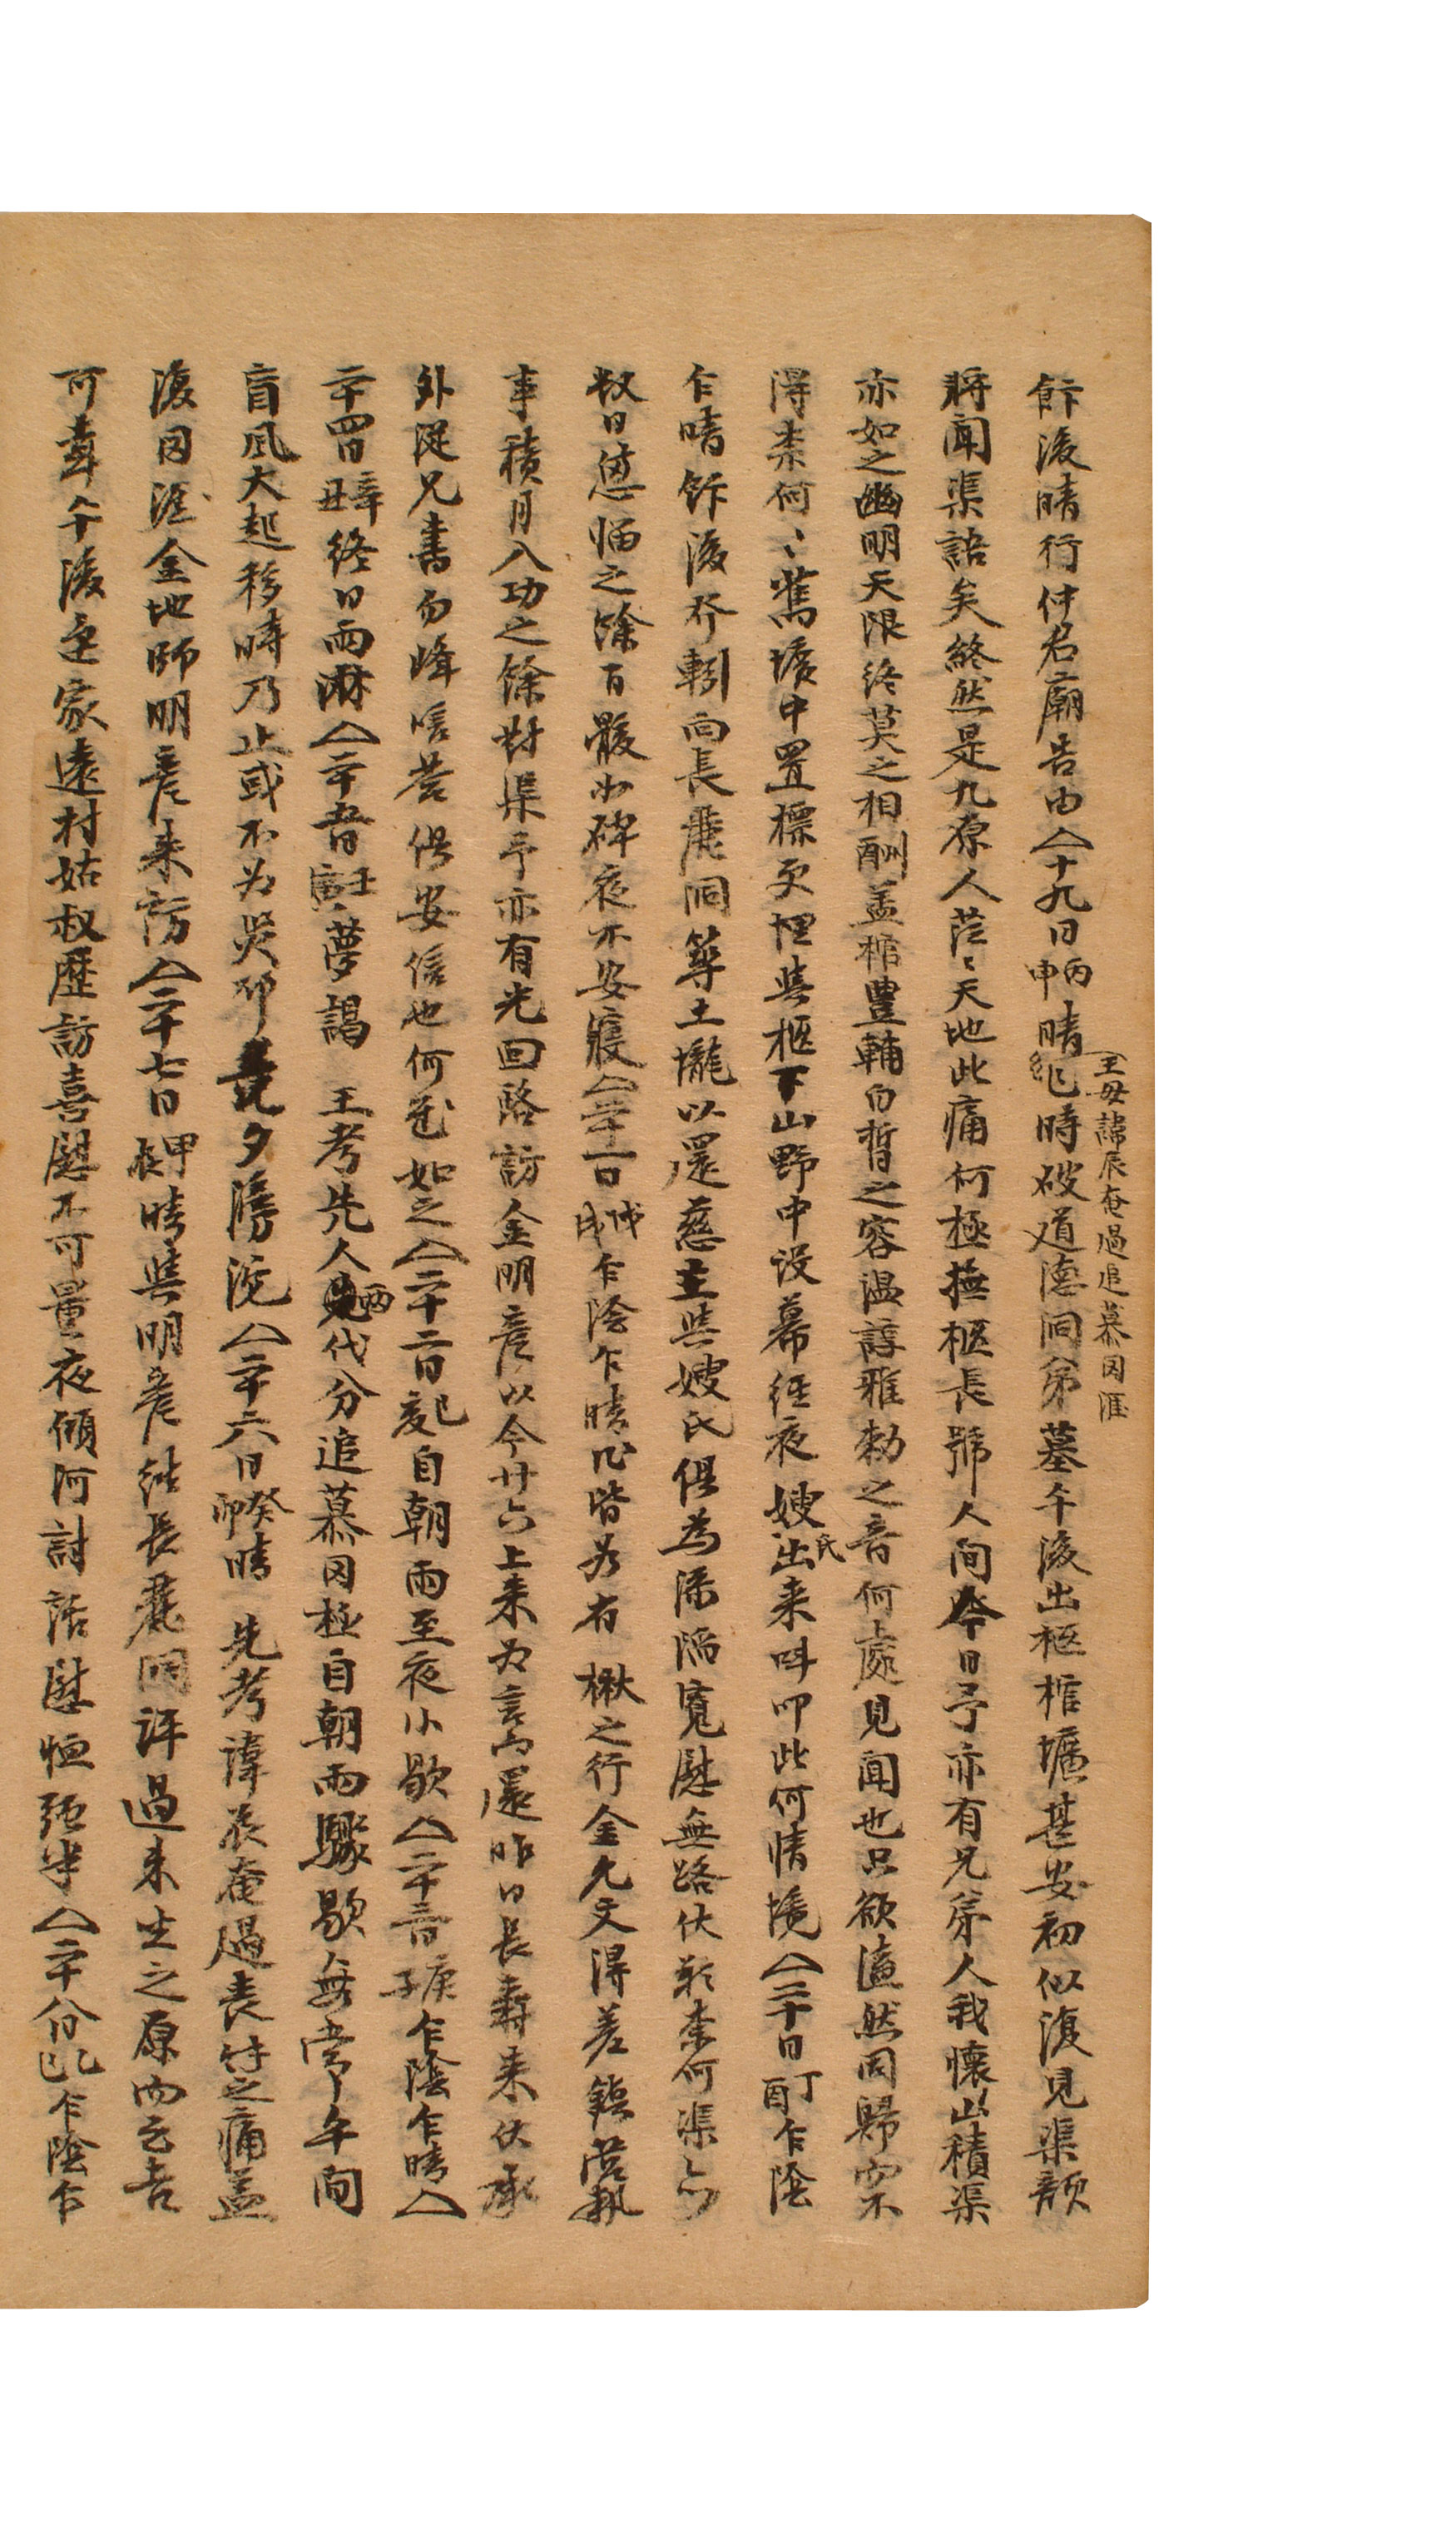 飰後晴行仲君廟告由〈十九日丙申晴乍時破道德洞弟墓午後出柩棺壙甚安初似復見渠顔
王母諱辰奄過追慕罔涯
將聞渠語矣終然是九原人茫〻天地此痛何極撫柩長號人间今日予亦有兄弟人我懷山積渠
亦如之幽明天限終莫之相酬盖棺豊輔白晳之容溫諄雅勑之音何處見聞也只欲溘然同歸而不
得柰何〻舊壙中置標更埋柴柩下山野中设幕經夜嫂氏出来呌叩此何情境〈二十日丁酉乍陰
乍晴飰後行靷向長麓洞筭土壠以還慈主與嫂氏俱为添隔寬慰無路伏歎柰何渠
数日悳惱之餘百骸如碎夜不安寢〈二十一日戊戌乍陰乍晴 皆 有楸之行金允文得差 營執
事積月入功之餘對渠予亦有光回路訪金明彦以今廿六上来为言而還昨日長壽来伏承
外從兄書勿峰 营俱安信也何 如之〈二十二日己亥自朝雨至夜小歇〈二十三日庚子乍陰乍晴〈
二十四日辛丑終日雨淋〈二十五日壬寅夢謁王考先人兩代分追慕罔極自朝雨驟歇無常午间
盲風大起移時乃止或不为災耶 夕滂沱〈二十六日癸卯晴先考諱辰奄過喪 之痛益
復罔涯金地師明彦来訪〈二十七日甲辰晴與明彦往長麓洞評過来生之原而云吉
可葬午後还家遠村姑叔歷訪喜慰不可量夜傾河討話慰恒 半〈二十八日乙巳乍陰乍